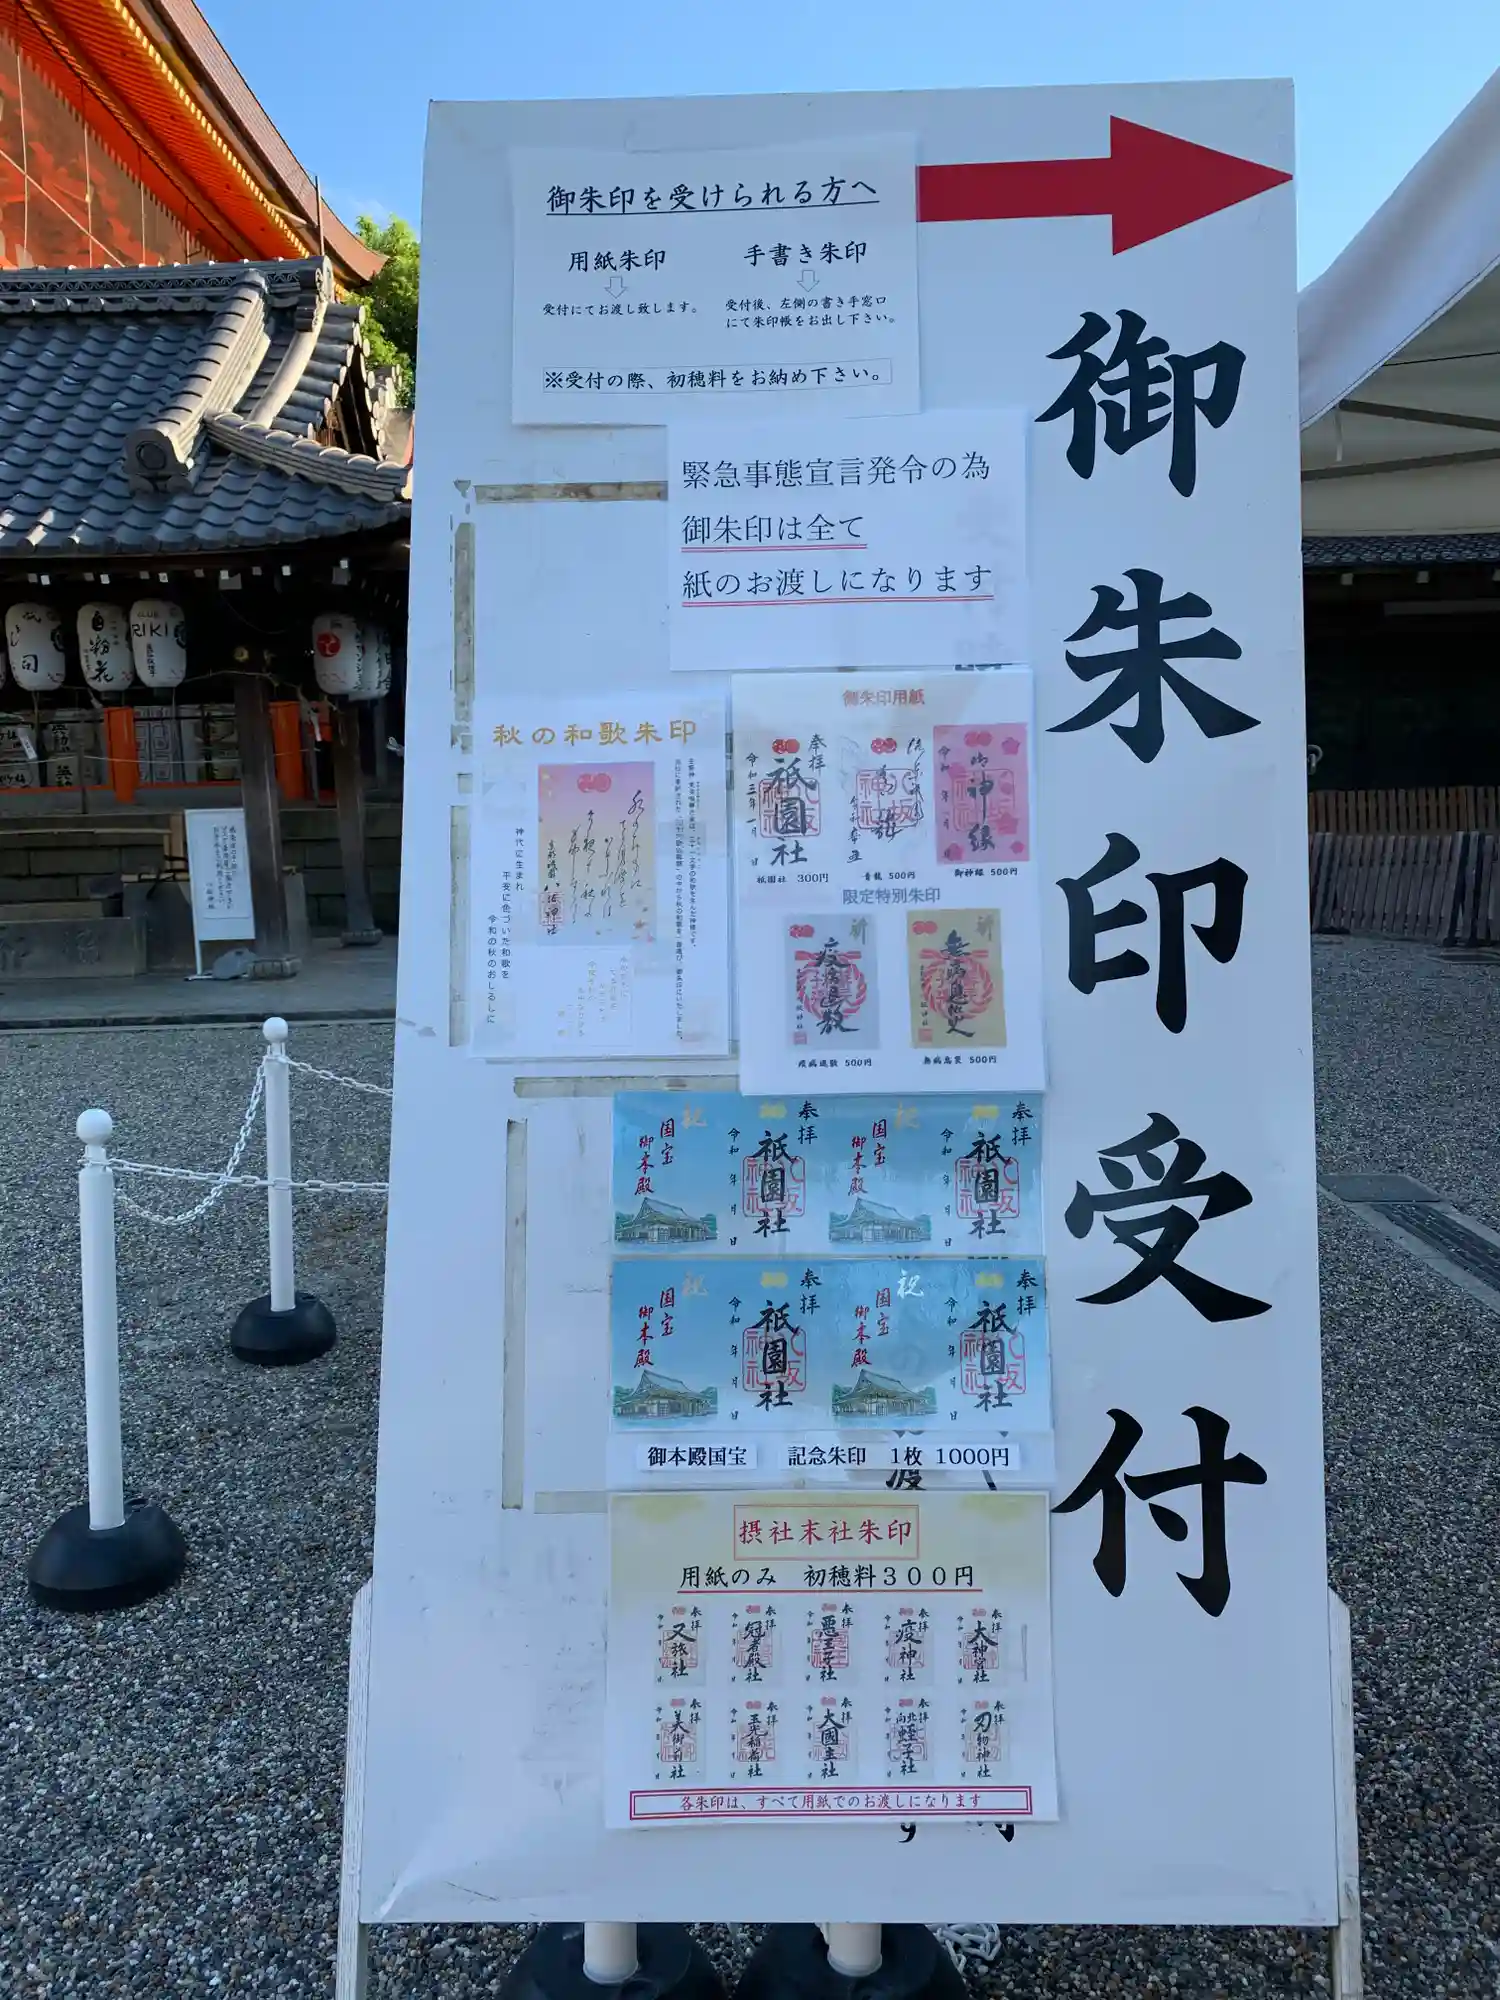 御朱印受付
御朱印を受けられる方へ
用紙朱印
受付にてお渡し致します。
手書き朱印
受付後、左側の書き手窓口
にて朱印帳をお出し下さい。
※受付の際、初穂料をお納め下さい。
緊急事態宣言発令の為
御朱印は全て
紙のお渡しになります
秋の和歌朱印
神代に生まれ
平安に色づいた和歌を
令和の秋のおしるしに
御朱印用紙
奉拝
祇園社
令和三年一月 日
祇園社 300円
青龍 500円
御神縁
令和 年 月 日
御神縁 500円
限定特別朱印
祈
疫病退散
疫病退散 500円
祈
無病息災
無病息災 500円
祝
国宝
御本殿
奉拝
祇園社
令和 年 月 日
祝
国宝
御本殿
奉拝
祇園社
令和 年 月 日
祝
国宝
御本殿
奉拝
祇園社
令和 年 月 日
祝
国宝
御本殿
奉拝
祇園社
令和 年 月 日
御本殿国宝 記念朱印 1枚 1000円
摂社末社朱印
用紙のみ 初穂料300円
奉拝
又旅社
奉拝
冠者殿社
奉拝
悪王子社
奉拝
疫神社
奉拝
大神宮社
奉拝
美御前社
奉拝
玉光稲荷社
奉拝
大國主社
奉拝
北向蛭子社
奉拝
刃物神社
各朱印は、すべて用紙でのお渡しになります
CLUB
RIKI